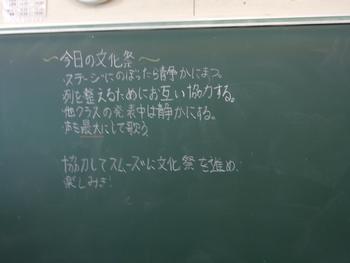 ～今日の文化祭～
・ステージにのぼったら静かにまつ。
・列を整えるためにお互い協力する。
・他クラスの発表中は静かにする。
・声を最大にして歌う。
協力してスムーズに文化祭を進め、
楽しみき!